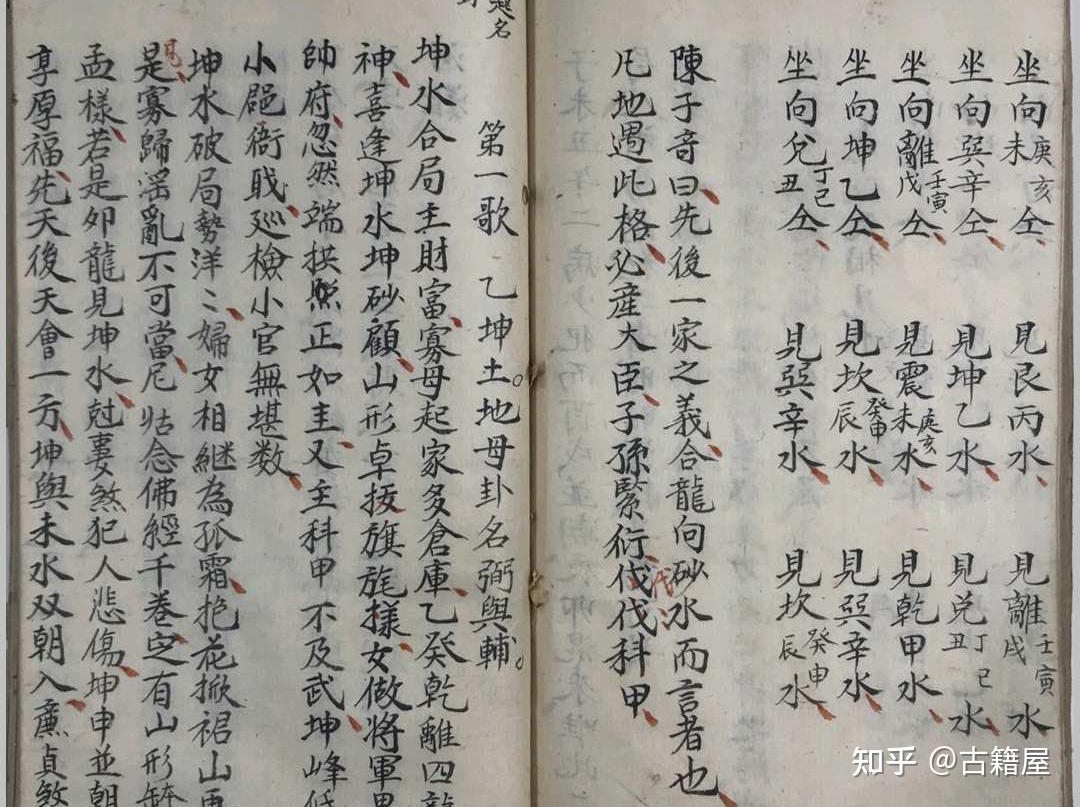 坐向庚亥未仝、見艮丙水、見離壬寅戌水
坐向巽辛仝、見坤乙水、見兌丁巳丑水
坐向離壬寅戊仝、見震庚亥未水、見乾甲水、
坐向坤乙仝、見坎癸申辰水、見巽辛水、
坐向兌丁巳丑仝、見巽辛水、見坎癸申辰水
陳子竒曰、先後一家之義、合龍向砂水而言者也、
凡地遇此格、必産大臣、子孫緊衍、伐伐科甲、
第一歌 乙坤土。地母卦名弼與輔。
坤水合局主財富、寡母起家多倉庫、乙癸乾離四龍
神、喜逢坤水坤砂顧、山形卓拔旗旄樣、女做將軍
帥府、忽然端拱熈正如主、又主科甲不及武、坤峰低
小郒衙戝、巡檢小官無堪數、
坤水破局勢洋〻、婦女相継為孤霜、抱花掀裙山再
見、是寡歸滛亂不可當、尼姑念佛經千卷、定有山形
孟樣、若是夘龍見坤水、尅妻煞犯人悲傷、坤申並朝
享厚福、先天後天會一方、坤與未水双朝入、亷貞煞
知乎 @古籍屋